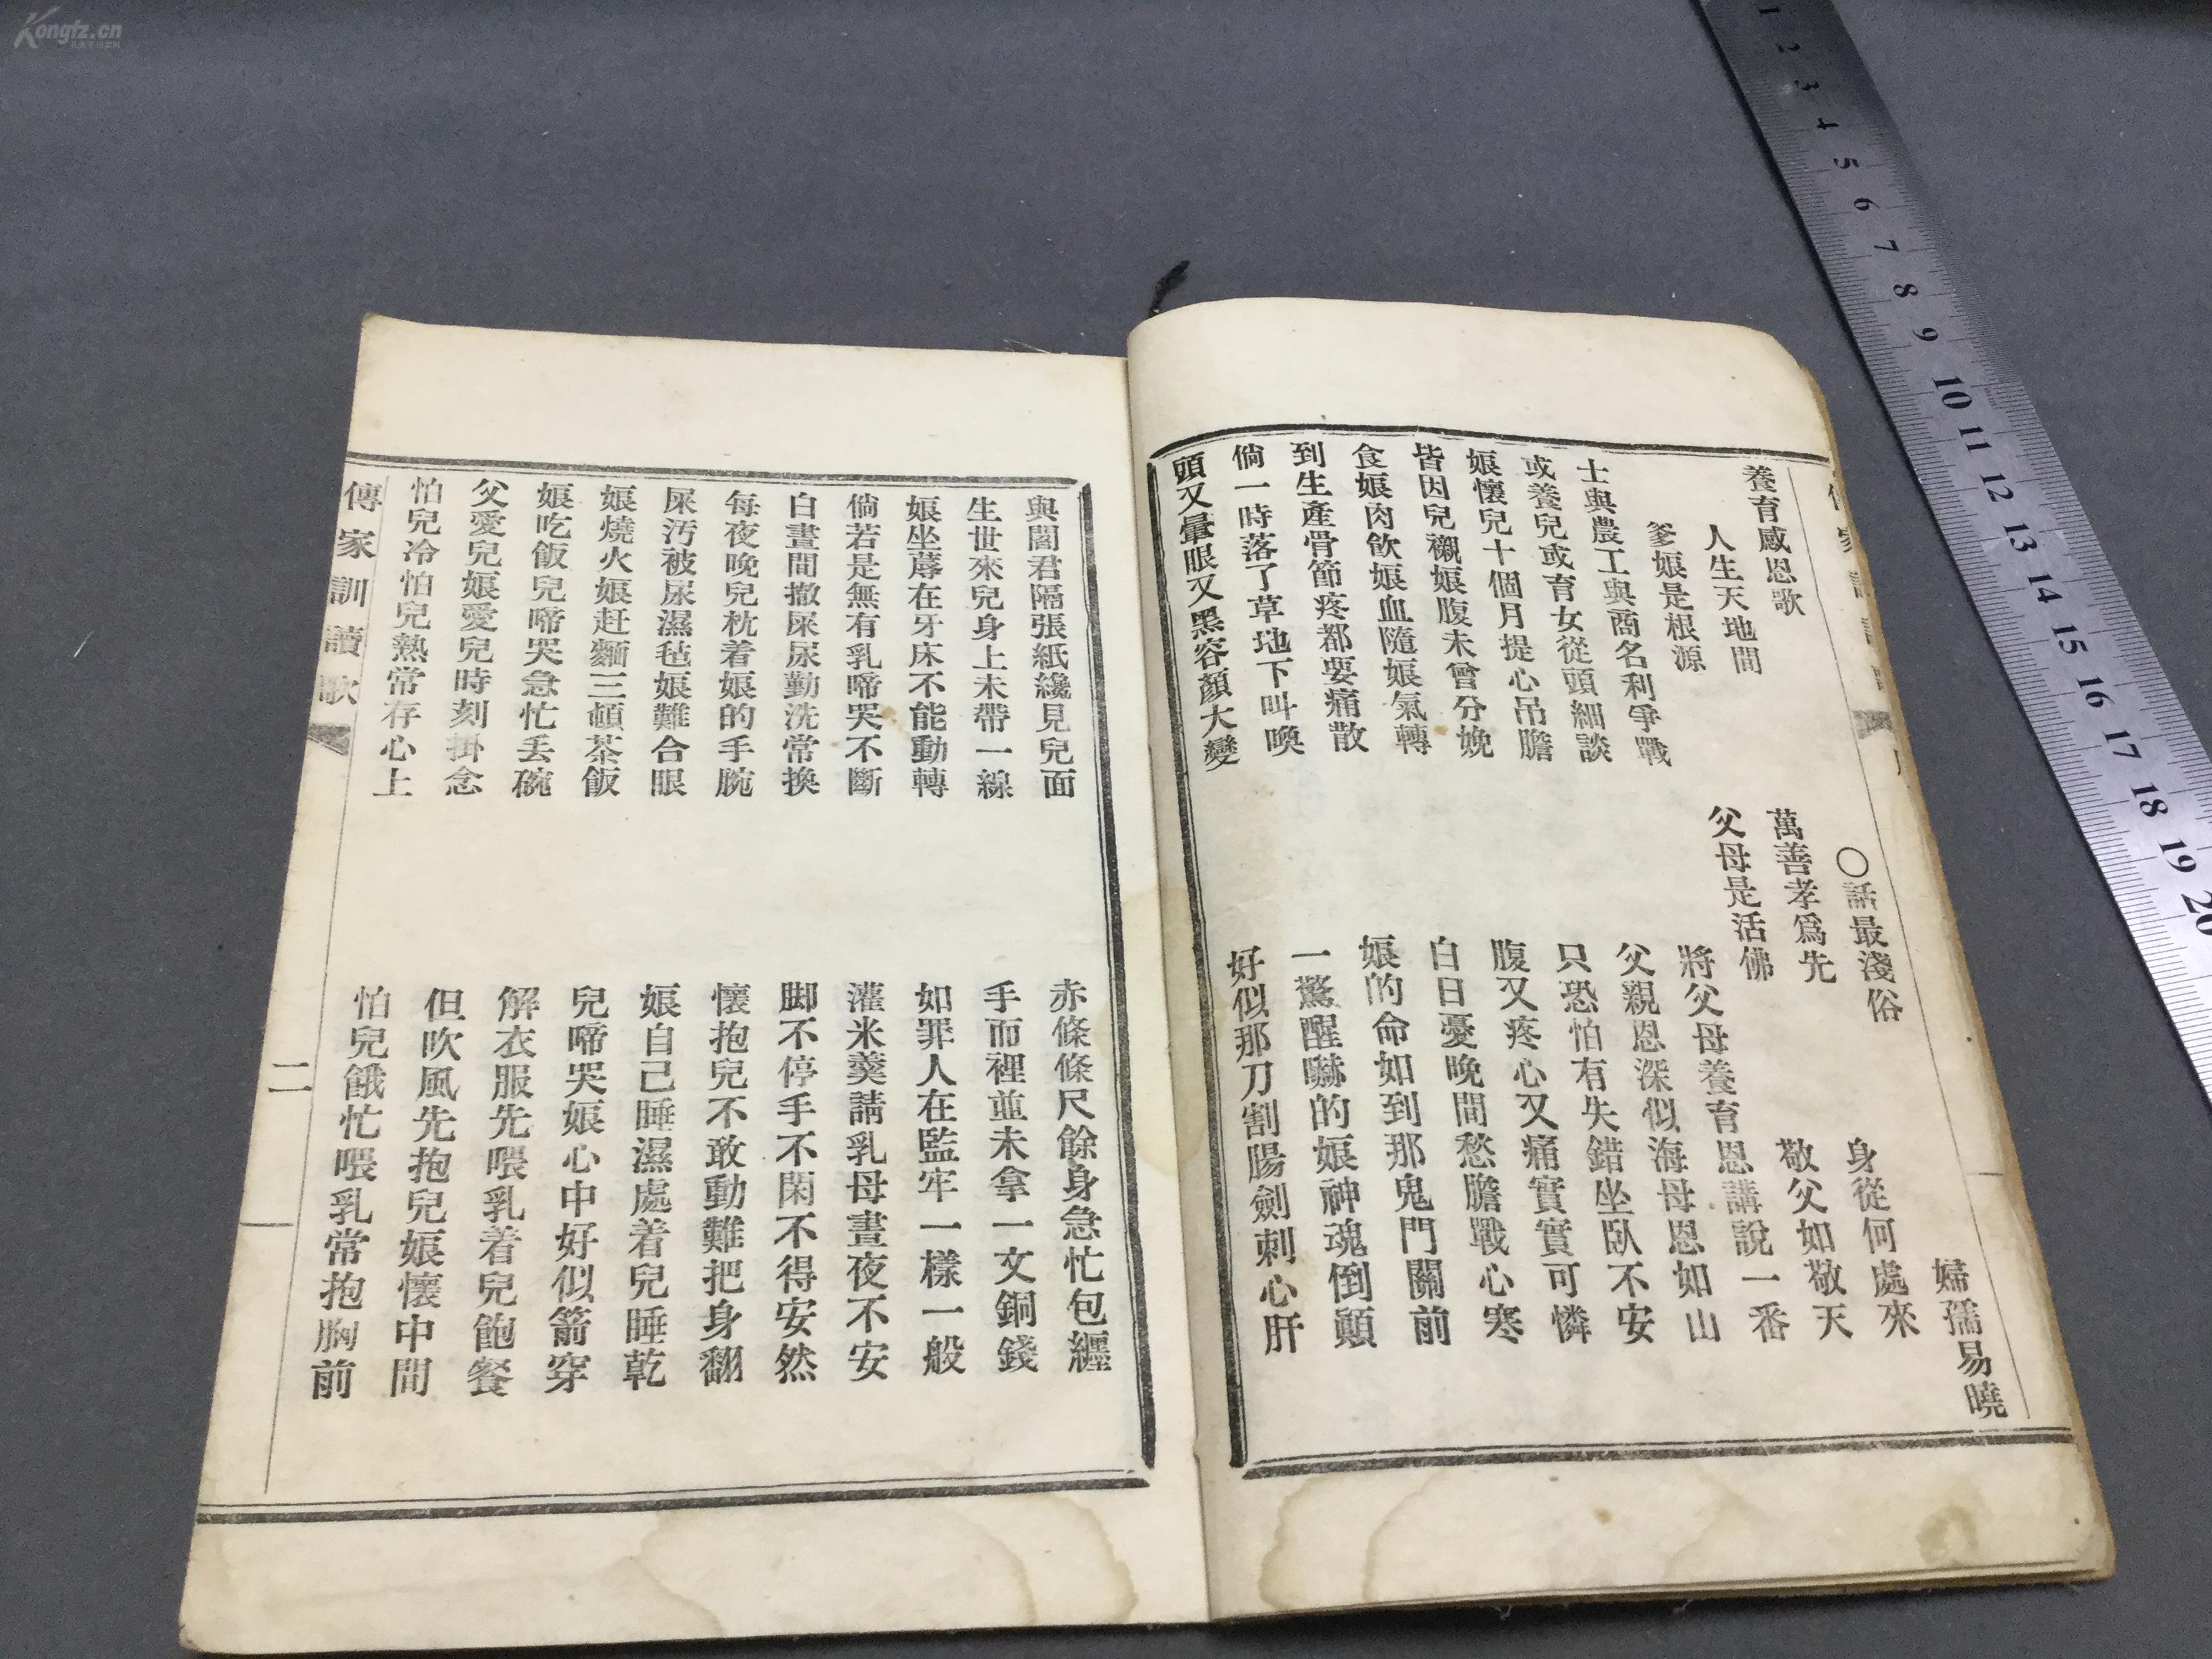 養育感恩歌
○話最淺俗
婦孺易曉
人生天地間
萬善孝爲先
身從何處來
爹娘是根源
父母是活佛
敬父如敬天
士與農工與商名利爭戰
將父母養育恩講說一番
或養兒或育女從頭細談
父親恩深似海母恩如山
娘懷兒十個月提心吊膽
只恐怕有失錯坐臥不安
皆因兒襯娘腹未曾分娩
腹又疼心又痛實實可憐
食娘肉飲娘血隨娘氣轉
白日憂晚間愁膽戰心寒
到生產骨節疼都要痛散
娘的命如到那鬼門關前
倘一時落了草地下叫喚
一驚醒嚇的娘神魂倒顛
頭又暈眼又黑容顏大變
好似那刀割腸劍刺心肝
一
與閻君隔張紙纔見兒面
赤條條尺餘身急忙包纏
生世來兒身上未帶一線
手而裡並未拿一文銅錢
娘坐蓐在牙床不能動轉
如罪人在監牢一樣一般
倘若是無有乳啼哭不斷
灌米羹請乳母晝夜不安
白晝間撤屎尿勤洗常換
脚不停手不閑不得安然
每夜晚兒枕着娘的手腕
懷抱兒不敢動難把身翻
屎汚被尿濕毡娘難合眼
娘自己睡濕處着兒睡乾
娘燒火娘赶麵三頓茶飯
兒啼哭娘心中好似箭穿
娘吃飯兒啼哭急忙丢碗
解衣服先喂乳着兒飽餐
父愛兒娘愛兒時刻掛念
但吹風先抱兒娘懷中間
怕兒冷怕兒熱常存心上
怕兒餓忙喂乳常抱胸前
傳家訓讀歌
二
Kongfz.cn
1 2 3 4 5 6 7 8 9 10 11 12 13 14 15 16 17 18 19 20